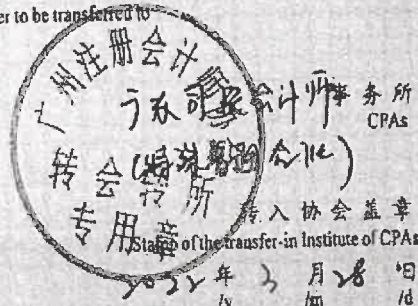 er to be transferred to
广州注册会计
广东司农会计师事务所
CPAs
(特殊普通合伙)
转会转所
专用章
转入协会盖章
Stamp of the transfer-in Institute of CPAs
2022 年 3 月 28 日
/y /m /d